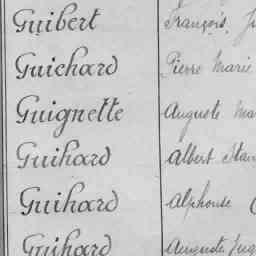 Guibert François,
Guichard Pierre Marie
Guignette Auguste
Guihard Albert
Guihard Alphonse
Guihard Auguste